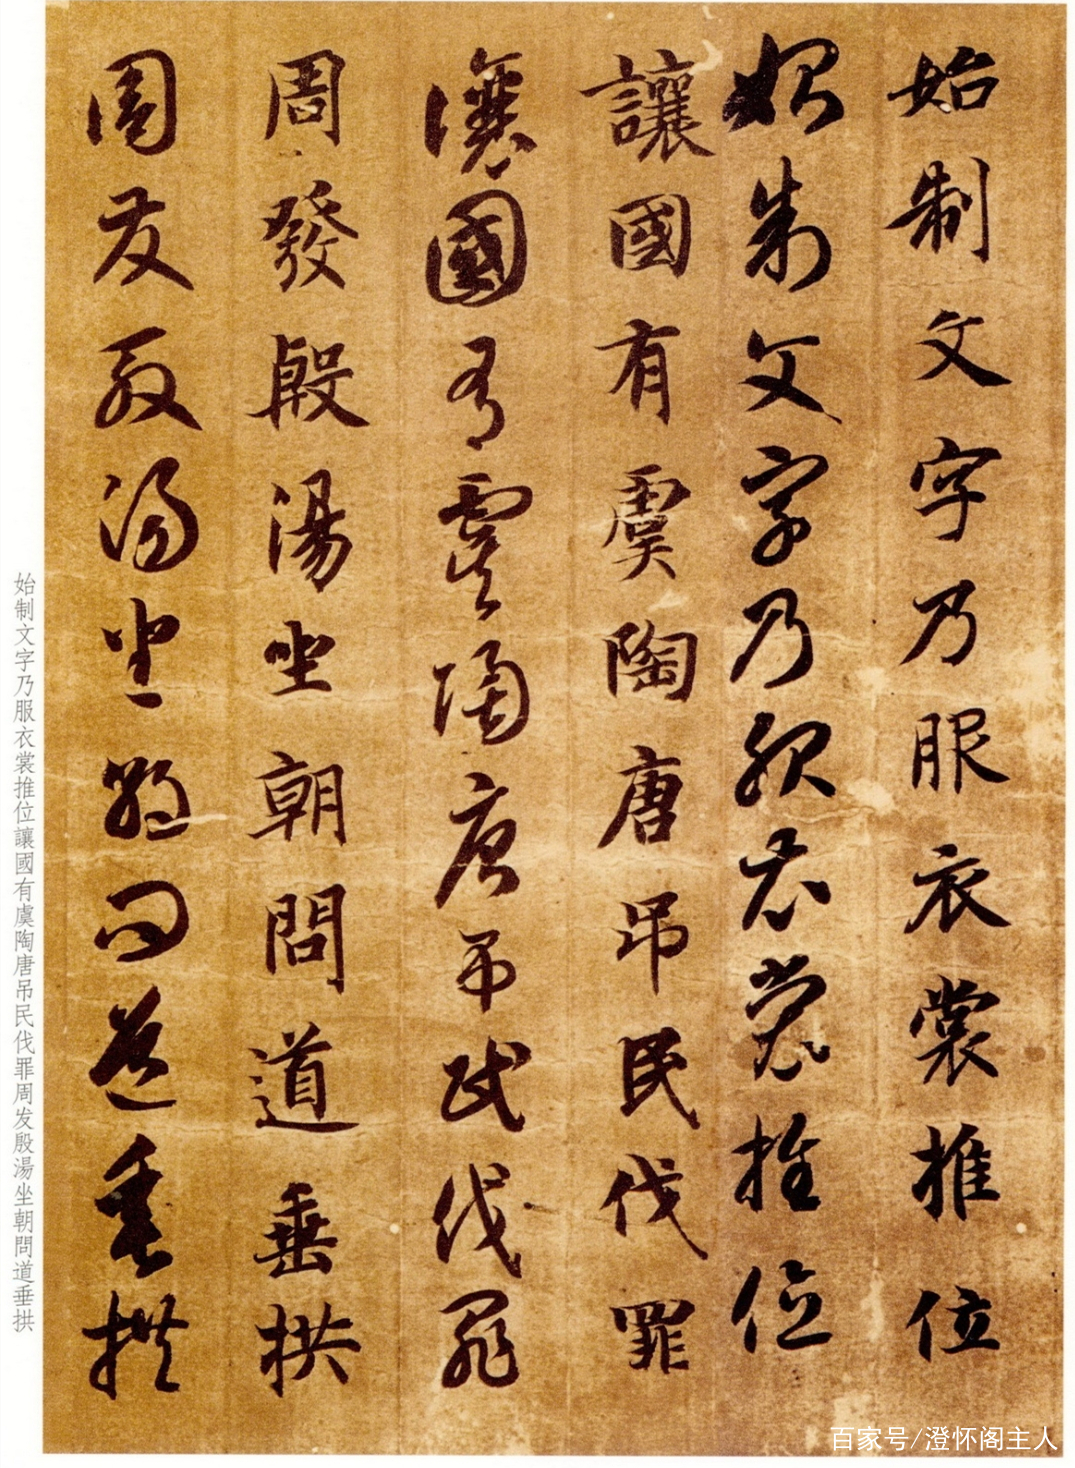 始制文字乃服衣裳推位
始制文字乃服衣裳推位
讓國有虞陶唐吊民伐罪
讓國有虞陶唐吊民伐罪
周發殷湯坐朝問道垂拱
周發殷湯坐朝問道垂拱
始制文字乃服衣裳推位讓國有虞陶唐吊民伐罪周发殷湯坐朝問道垂拱
百家号/澄怀阁主人